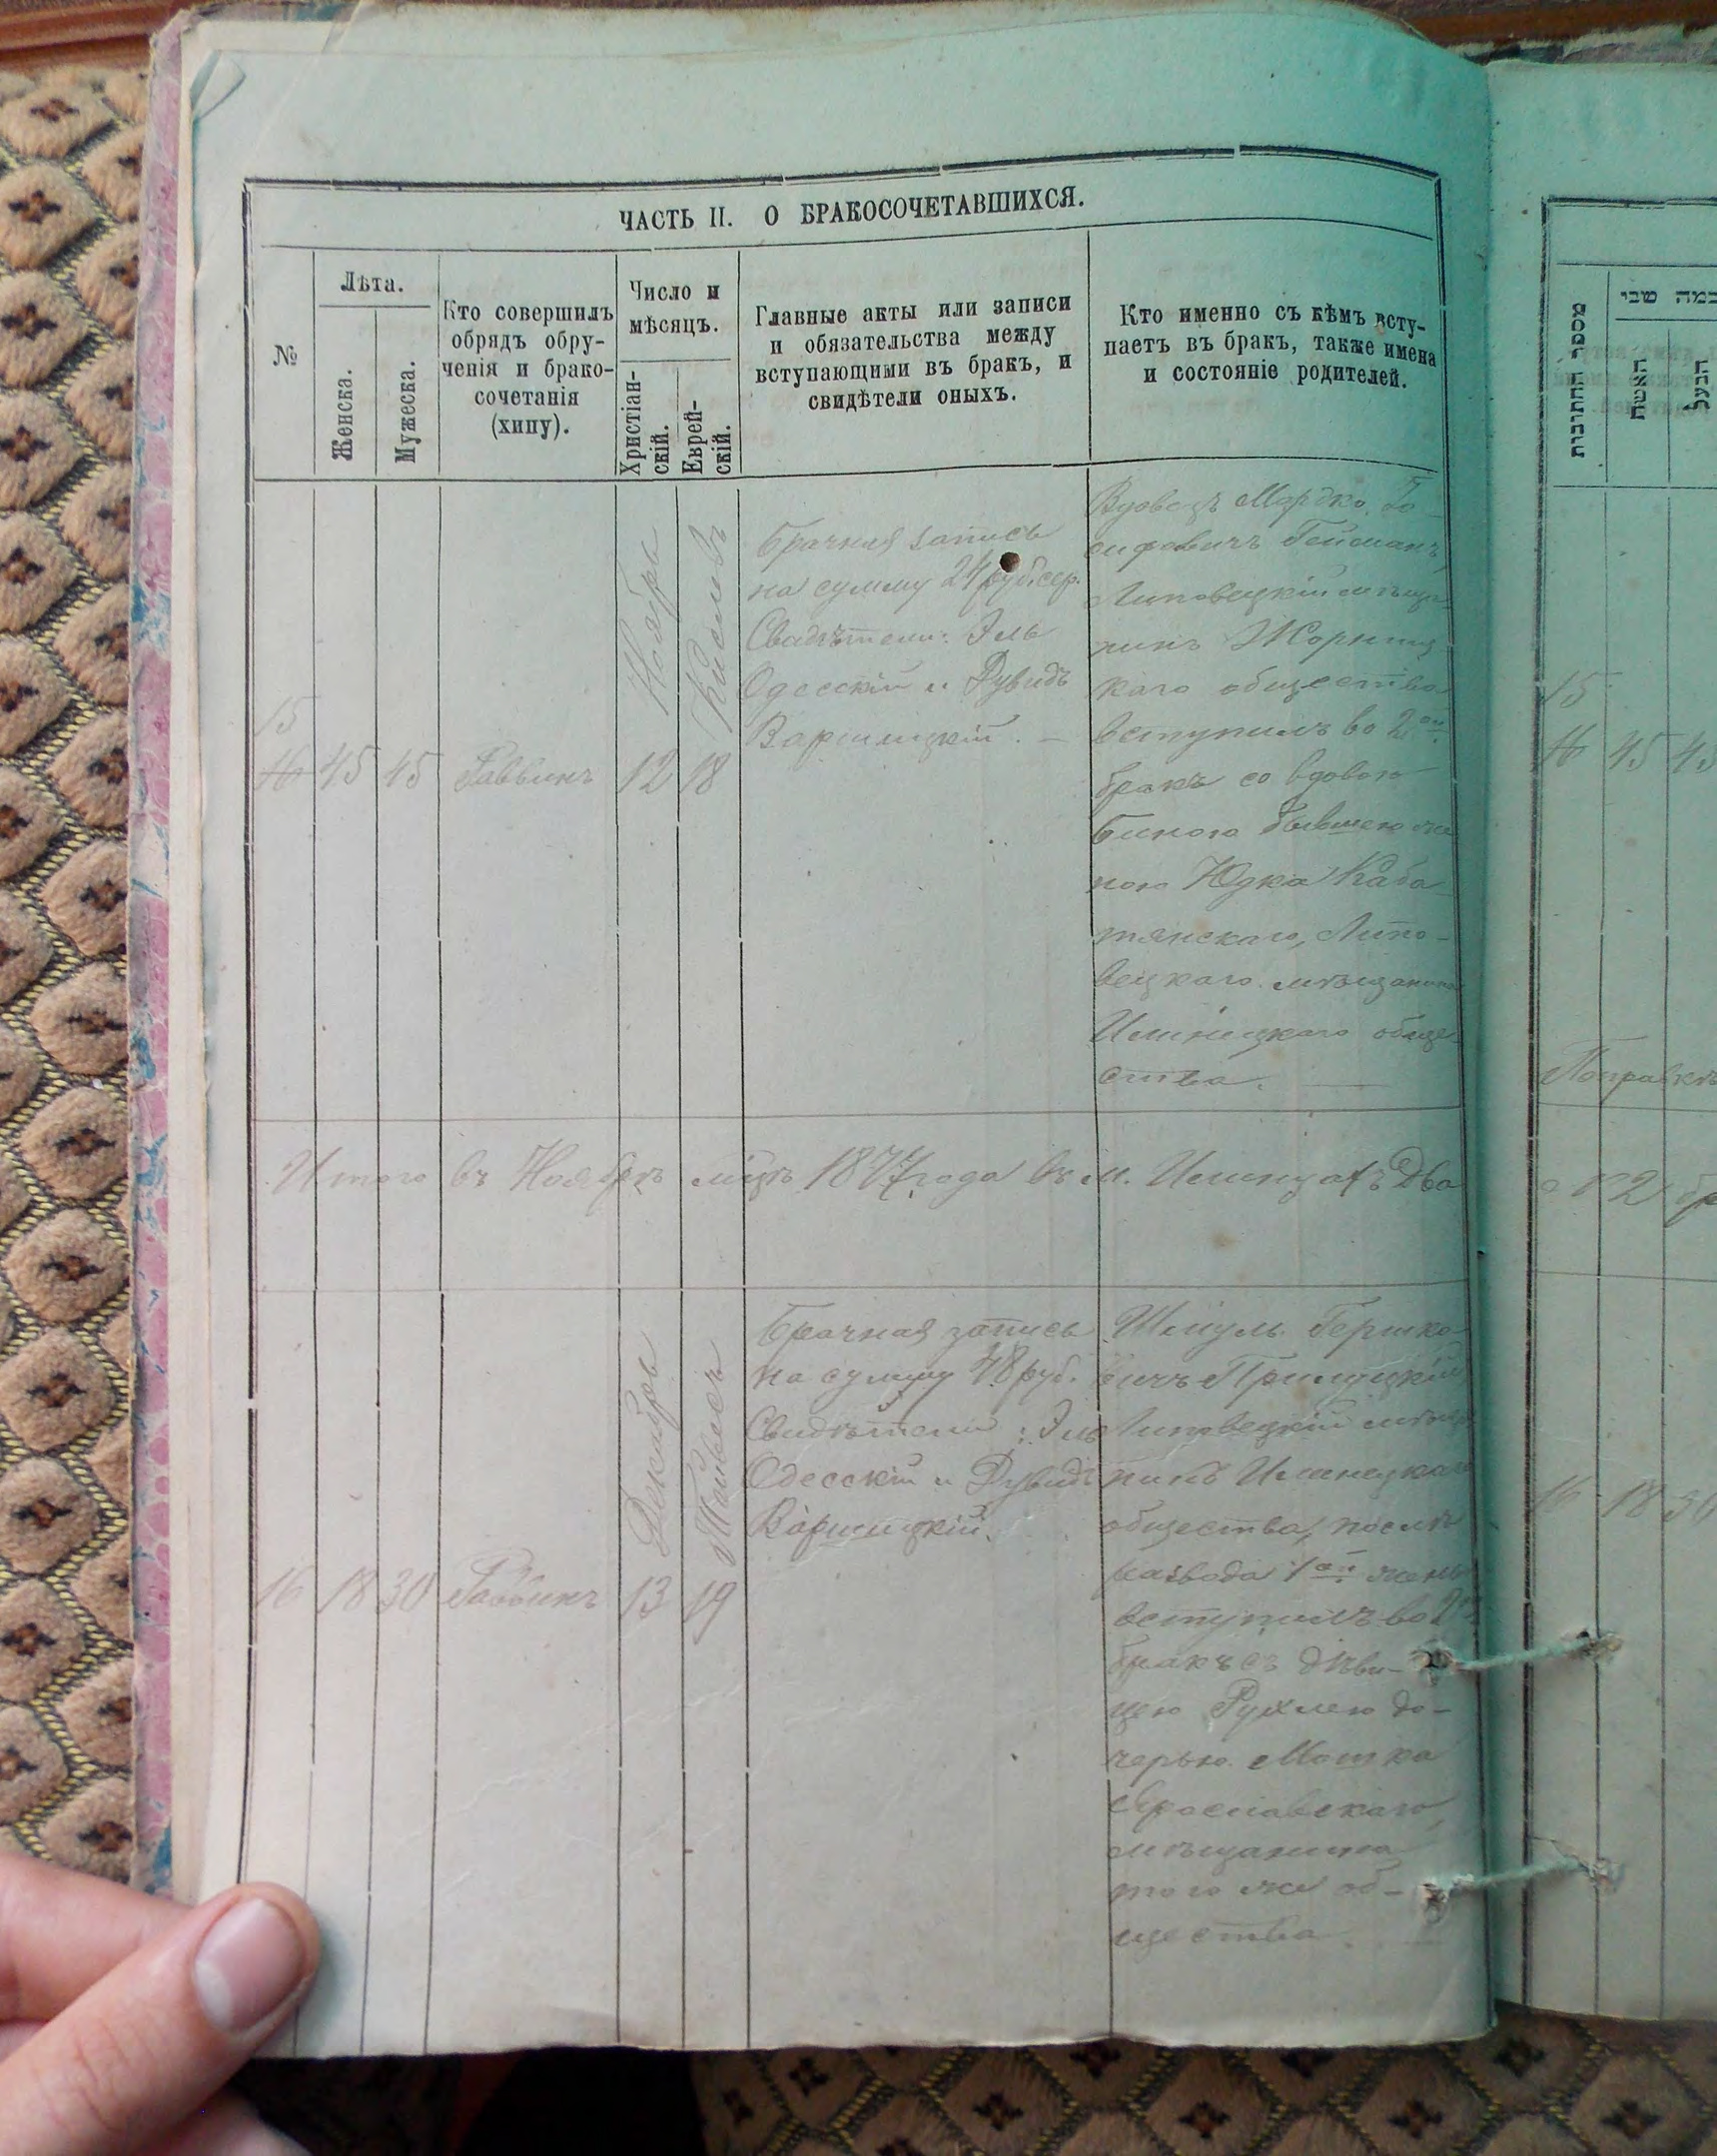 ЧАСТЬ II. О БРАКОСОЧЕТАВШИХСЯ.
№
Лѣта.
Женска.
Мужеска.
Кто совершилъ
обрядъ обру-
ченія и брако-
сочетанія
(хипу).
Число и
мѣсяцъ.
Христіан-
скій.
Еврей-
скій.
Главные акты или записи
и обязательства между
вступающими въ бракъ, и
свидѣтели оныхъ.
Кто именно съ кѣмъ всту-
паетъ въ бракъ, также имена
и состояніе родителей.
15
16
45
45
Раввинъ
Ноябрь
12
Кислевъ
18
Брачная запись
на сумму 24 руб. сер.
Свидѣтели: Эль
Одесскій и Рувидъ
Варшицкій. —
Вдовецъ Мордко Іо-
сифовичъ Гейсман
Липовецкій мѣща-
нинъ Жорнищ
каго общества
вступилъ во 2ой
бракъ со вдовою
Биною бывшею же
ною Юдка Каба
тянскаго, Липо-
вецкаго мѣщанина
Илинецкаго обще-
ства. —
Итого въ Ноябрѣ мѣцѣ 1877 года въ м. Илинцахъ Два
16
18
30
Раввинъ
Декабрь
13
Тейвесъ
19
Брачная запись
на сумму 48 руб.
Свидѣтели: Эль
Одесскій и Рувидъ
Варшицкій.
Шмуль Гершко-
вичъ Прилуцкій
Липовецкій мѣща
нинъ Илинецкаго
общества, послѣ
развода 1ой жены
вступилъ во 2ой
бракъ съ дѣви-
цею Рухлею до-
черью Мошка
Ярославскаго,
мѣщанина
того же об-
щества.
מספר החתונות
כמה שני
האשה
הבעל
15
16
45
45
Поправкѣ
2
16
18
30